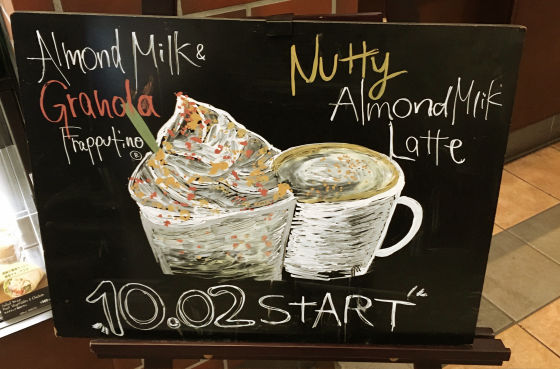 Almond Milk &
Granola
Frapputino®
Nutty
Almond Mlik
Latte
"10.02 START"